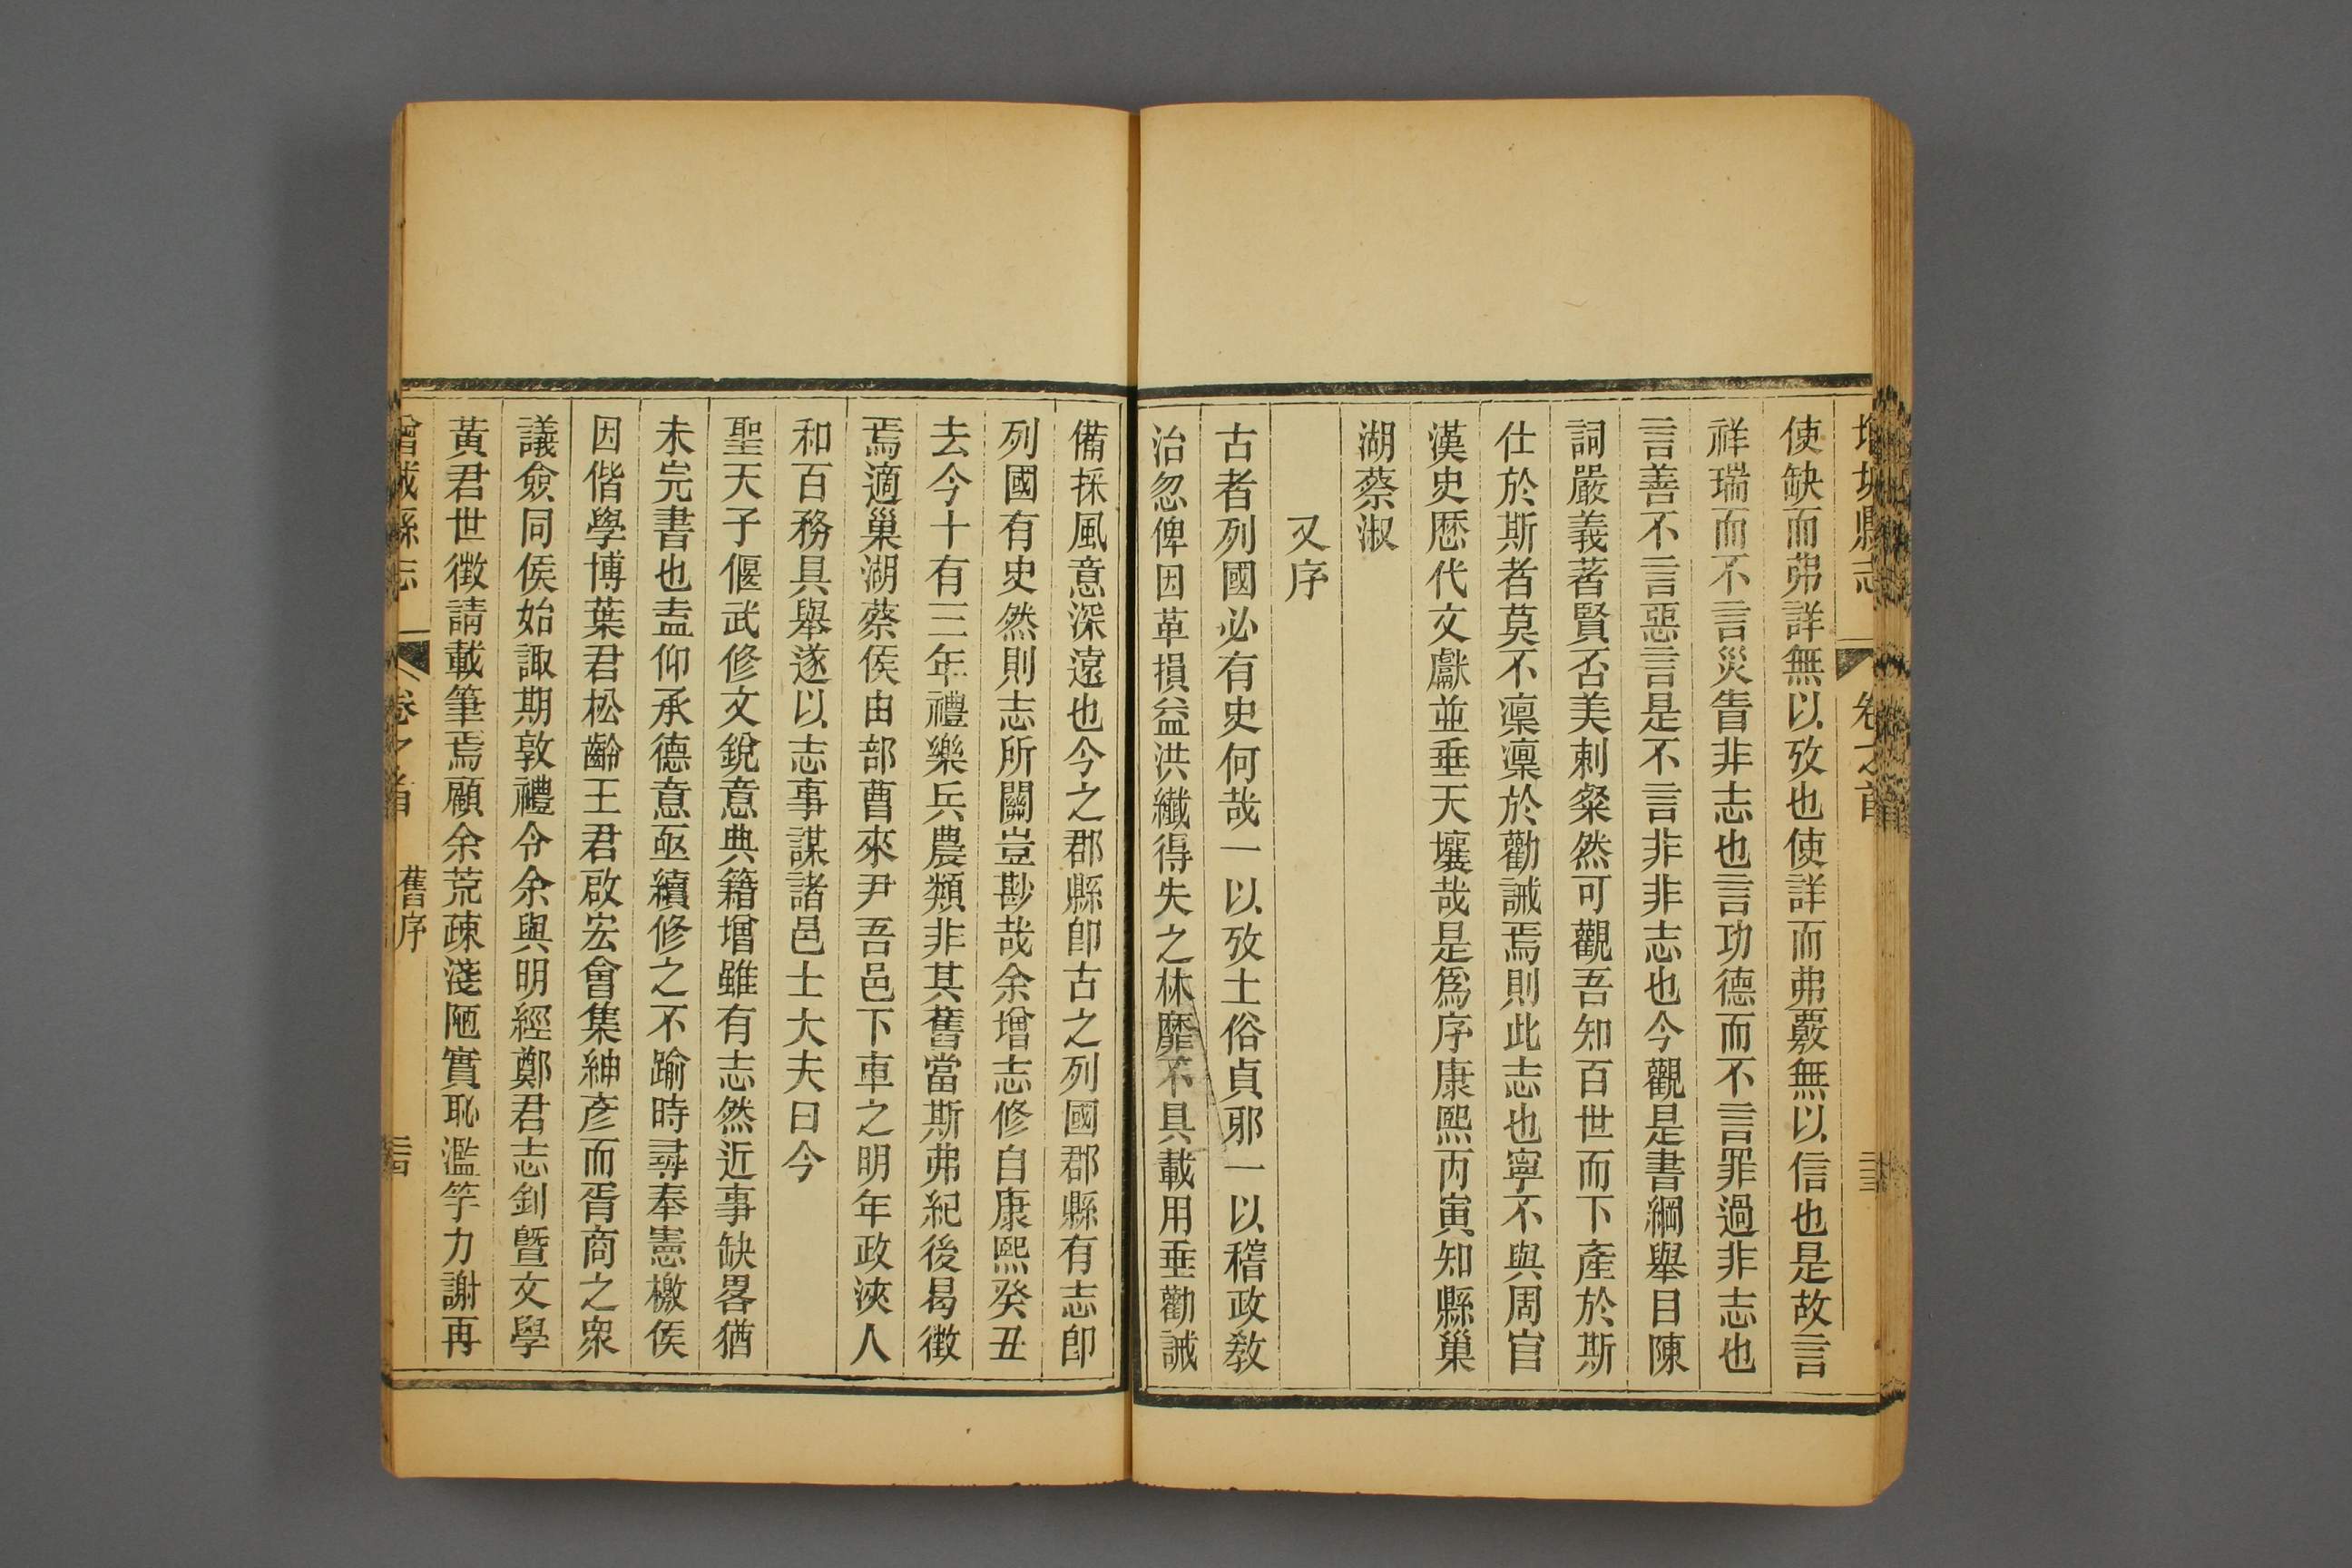 增城縣志
卷之首
使缺而弗詳無以攷也使詳而弗覈無以信也是故言
祥瑞而不言災眚非志也言功德而不言罪過非志也
言善不言惡言是不言非非志也今觀是書綱舉目陳
詞嚴義著賢否美刺粲然可觀吾知百世而下產於斯
仕於斯者莫不凜凜於勸誡焉則此志也寧不與周官
漢史歷代文獻並垂天壤哉是爲序康熙丙寅知縣巢
湖蔡淑
又序
古者列國必有史何哉一以攷土俗貞邪一以稽政敎
治忽俾因革損益洪纖得失之林靡不具載用垂勸誡
備採風意深遠也今之郡縣卽古之列國郡縣有志卽
列國有史然則志所關豈尠哉余增志修自康熙癸丑
去今十有三年禮樂兵農類非其舊當斯弗紀後曷徵
焉適巢湖蔡侯由部曹來尹吾邑下車之明年政浹人
和百務具舉遂以志事謀諸邑士大夫曰今
聖天子偃武修文銳意典籍增雖有志然近事缺畧猶
未完書也盍仰承德意亟續修之不踰時尋奉憲檄侯
因偕學博葉君松齡王君啟宏會集紳彥而胥商之衆
議僉同侯始諏期敦禮令余與明經鄭君志釗曁文學
黃君世徵請載筆焉顧余荒疎淺陋實恥濫竽力謝再
增城縣志
卷之首
舊序